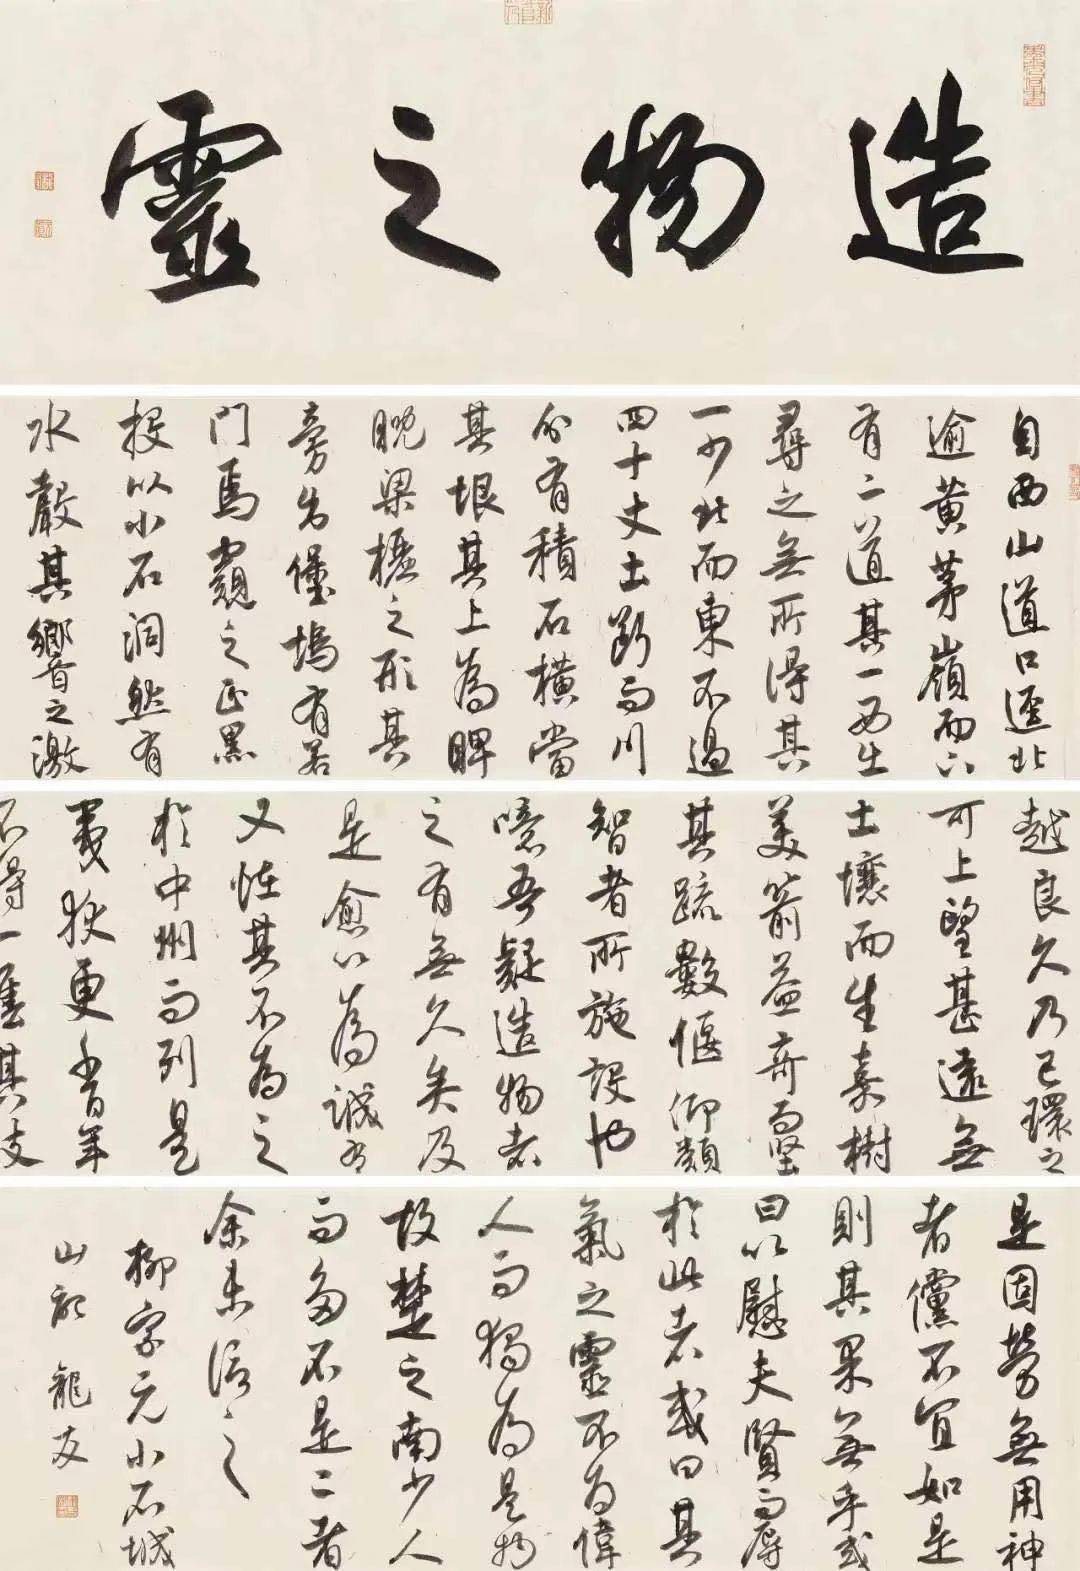 造物之靈
自西山道口逕北
逾黄茅嶺而下
有二道其一西出
尋之無所得其
一少北而東不過
四十丈土斷而川
分有積石橫當
其垠其上為睥
睨梁欐之形其
旁出堡塢有若
門焉窺之正黑
投以小石洞然有
水聲其響之激
越良久乃已環之
可上望甚遠無
土壤而生嘉樹
美箭益奇而堅
其疏數偃仰類
智者所施設也
噫吾疑造物者
之有無久矣及
是愈以為誠有
又怪其不為之
於中州而列是
夷狄更千百年
不得一售其伎
是固勞無用神
者儻不宜如是
則其果無乎或
曰以慰夫賢而辱
於此者或曰其
氣之靈不為偉
人而獨為是物
故楚之南少人
而多石是二者
余未信之
柳宗元小石城
山記 龍友